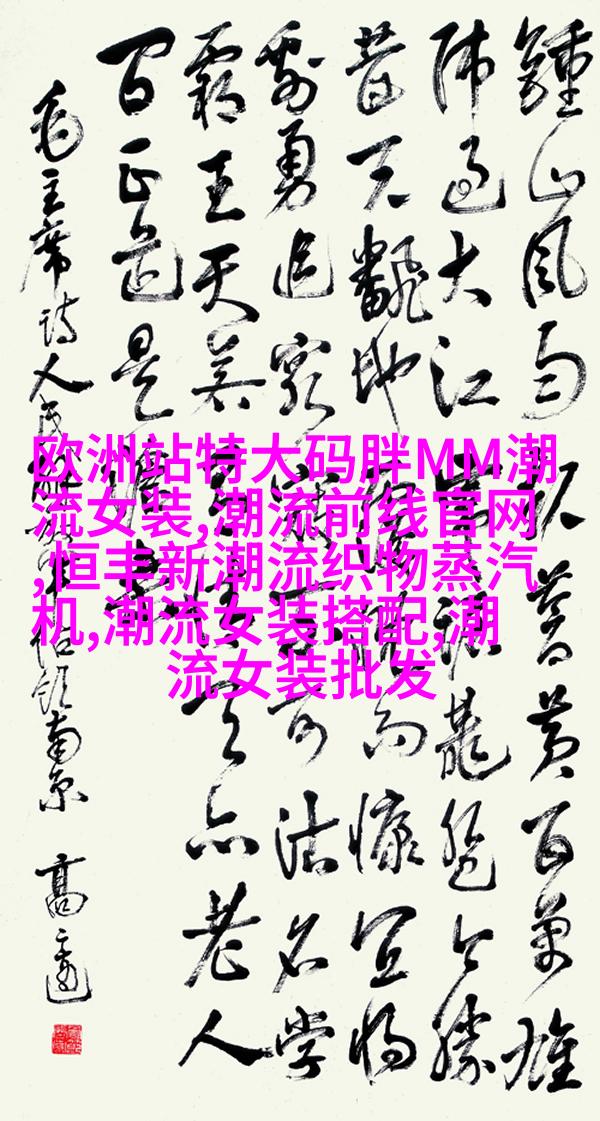 鍾山風雨起蒼黃百萬雄
師過大江虎踞龍盤今勝
昔天翻地覆慨而慷宜將
剩勇追窮寇不可沽名學
霸王天若有情天亦老人
間正道是滄桑
毛主席詩人民解放軍佔領南京 高
欧洲站特大码胖MM潮
流女装,潮流前线官网
,恒丰新潮流织物蒸汽
机,潮流女装搭配,潮
流女装批发